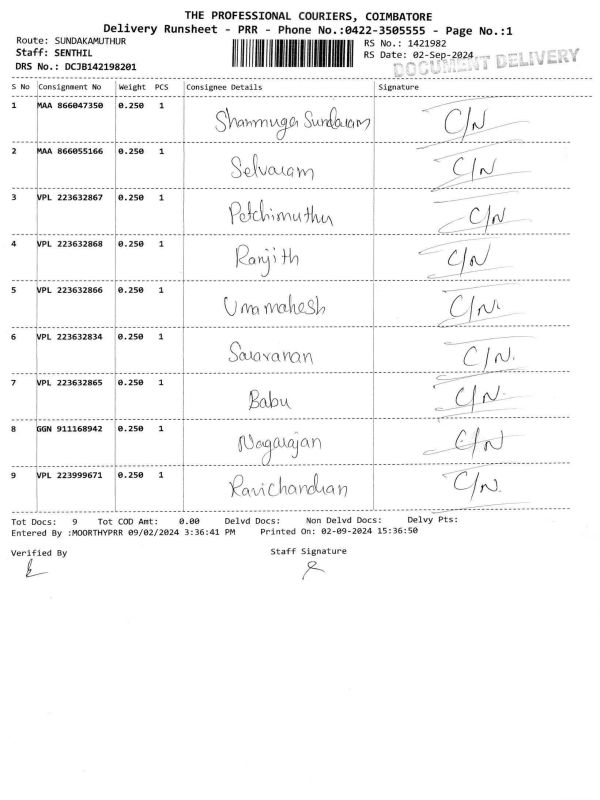 THE PROFESSIONAL COURIERS, COIMBATORE
Delivery Runsheet - PRR - Phone No.:0422-3505555 - Page No.:1
Route: SUNDAKAMUTHUR RS No.: 1421982
Staff: SENTHIL RS Date: 02-Sep-2024
DOCUMENT DELIVERY
DRS No.: DCJB142198201
S No Consignment No Weight PCS Consignee Details Signature
1 MAA 866047350 0.250 1 Shanmuga Sundaram C/N
2 MAA 866055166 0.250 1 Selvaram C/N
3 VPL 223632867 0.250 1 Petchimuthu C/N
4 VPL 223632868 0.250 1 Ranjith C/N
5 VPL 223632866 0.250 1 Umamahesh C/N.
6 VPL 223632834 0.250 1 Saravanan C/N.
7 VPL 223632865 0.250 1 Babu C/N.
8 GGN 911168942 0.250 1 Nagarajan C/N
9 VPL 223999671 0.250 1 Ravichandran C/N.
Tot Docs: 9 Tot COD Amt: 0.00 Delvd Docs: Non Delvd Docs: Delvy Pts:
Entered By :MOORTHYPRR 09/02/2024 3:36:41 PM Printed On: 02-09-2024 15:36:50
Verified By Staff Signature